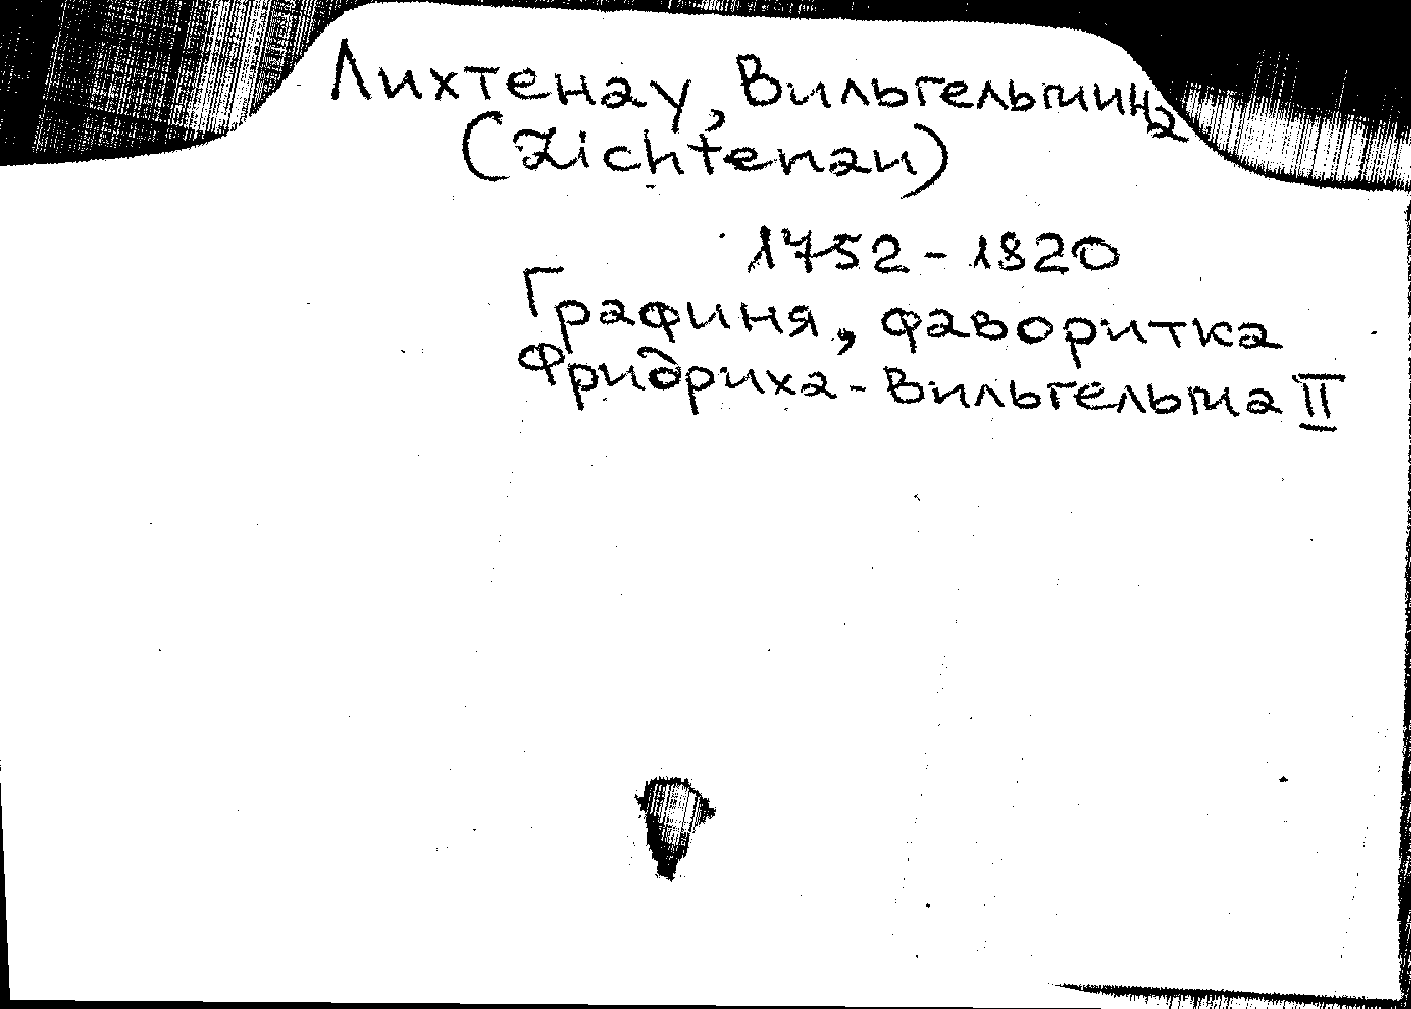 Лихтенау, Вильгельмина
(Lichtenau)
1752-1820
Графиня, фаворитка
Фридриха-Вильгельма II